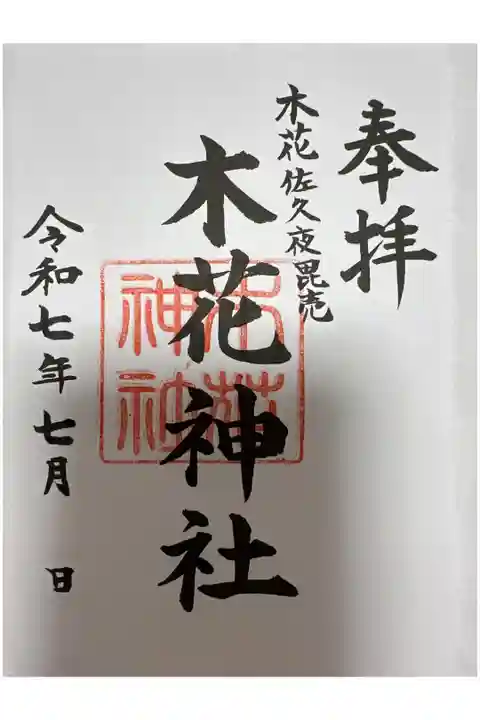 奉拝
木花佐久夜毘売
木花神社
木花神社
令和七年七月 日